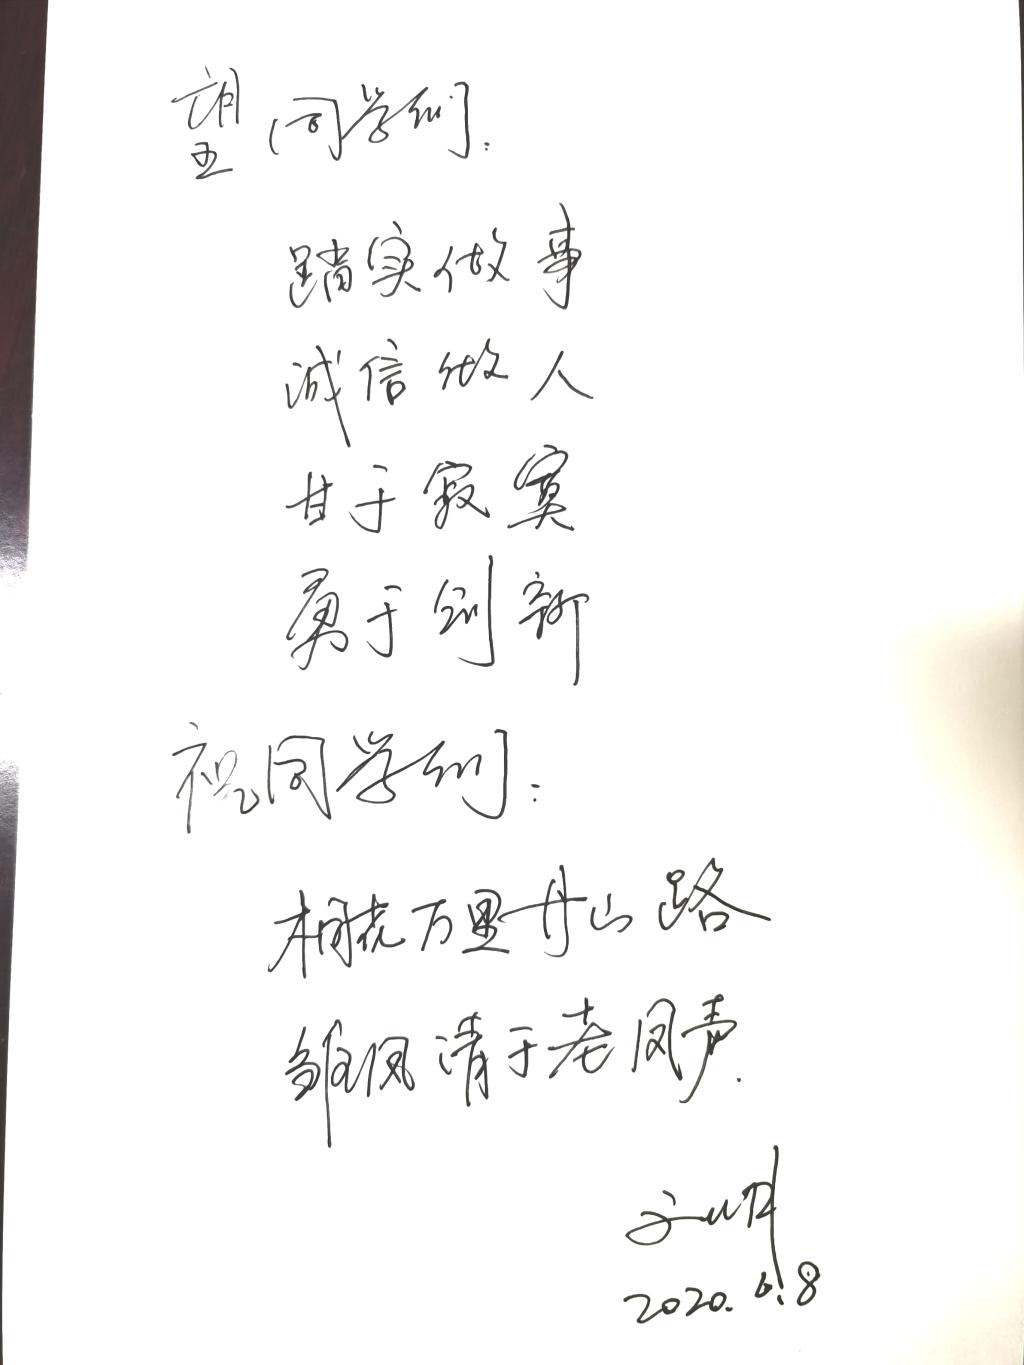 望同学们:
踏实做事
诚信做人
甘于寂寞
勇于创新
祝同学们:
桐花万里丹山路
雏凤清于老凤声.
2020.6.8